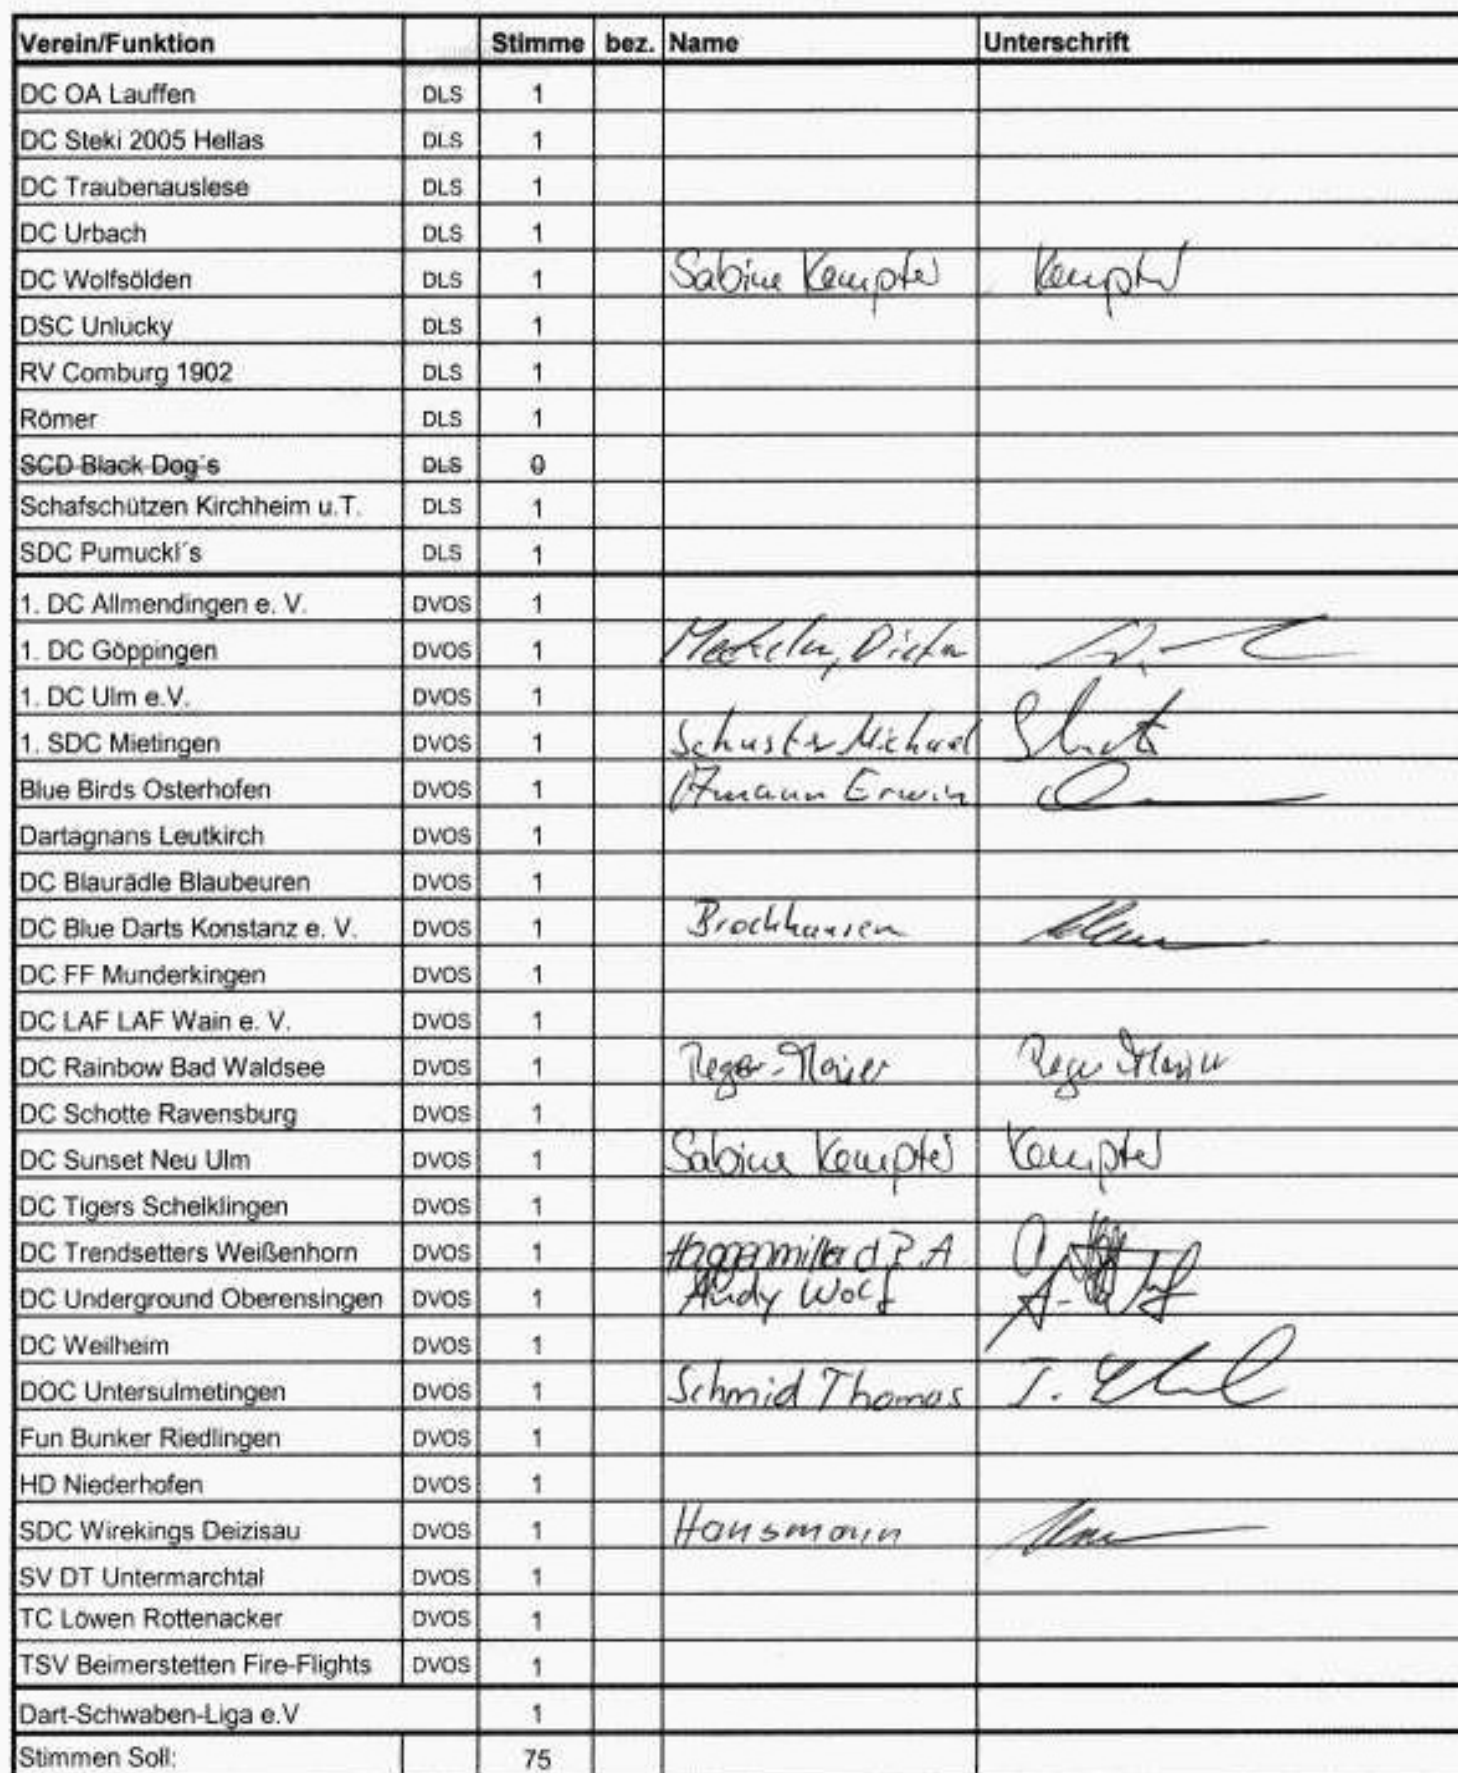 Verein/Funktion Stimme bez. Name Unterschrift
DC OA Lauffen DLS 1
DC Steki 2005 Hellas DLS 1
DC Traubenauslese DLS 1
DC Urbach DLS 1
DC Wolfsölden DLS 1 Sabine Kempter Kempter
DSC Unlucky DLS 1
RV Comburg 1902 DLS 1
Römer DLS 1
SCD Black Dog´s DLS 0
Schafschützen Kirchheim u.T. DLS 1
SDC Pumuckl´s DLS 1
1. DC Allmendingen e. V. DVOS 1
1. DC Göppingen DVOS 1
1. DC Ulm e.V. DVOS 1
1. SDC Mietingen DVOS 1 Schuster Michael
Blue Birds Osterhofen DVOS 1 Erwin
Dartagnans Leutkirch DVOS 1
DC Blaurädle Blaubeuren DVOS 1
DC Blue Darts Konstanz e. V. DVOS 1 Brockhausen
DC FF Munderkingen DVOS 1
DC LAF LAF Wain e. V. DVOS 1
DC Rainbow Bad Waldsee DVOS 1
DC Schotte Ravensburg DVOS 1
DC Sunset Neu Ulm DVOS 1 Sabine Kempter Kempter
DC Tigers Schelklingen DVOS 1
DC Trendsetters Weißenhorn DVOS 1
DC Underground Oberensingen DVOS 1 Andy Wolf
DC Weilheim DVOS 1
DOC Untersulmetingen DVOS 1 Schmid Thomas
Fun Bunker Riedlingen DVOS 1
HD Niederhofen DVOS 1
SDC Wirekings Deizisau DVOS 1 Hansmann
SV DT Untermarchtal DVOS 1
TC Löwen Rottenacker DVOS 1
TSV Beimerstetten Fire-Flights DVOS 1
Dart-Schwaben-Liga e.V 1
Stimmen Soll: 75